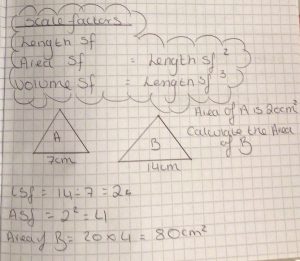 Scale factors
Length Sf
Area Sf = Length Sf ²
Volume Sf = Length Sf ³
Area of A is 20cm²
Calculate the Area
of B
A
7cm
B
14cm
LSf = 14÷7 = 2
ASf = 2² = 4
Area of B = 20×4 = 80cm²